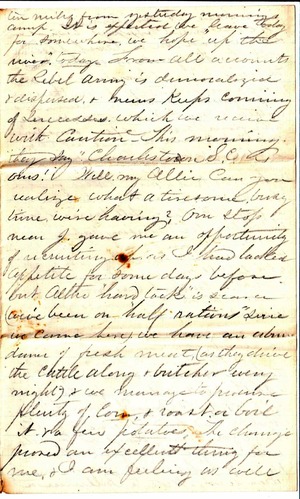 ten miles from yesterday morning
camp It is expected we leave today
for somewhere, we hope "up the
river, today. From all accounts
the Rebel Army is demoralized
& dispersed, & news keeps coming
of successes, which we receive
with Caution. This morning
they say "Charleston S.C. is
ours"! Well, my Allie Can you
realize what a tiresome busy
time we're having? Our stop
near J. gave me an opportunity
of recruiting, as I had lacked
appetite for some days before
but altho' hard tack is scarce
(we've been on half rations" since
we came here) we have an abun
dance of fresh meat, (as they drive
the Cattle along & butcher every
night) & we manage to procure
plenty of Corn, & roast or boil
it, & a few potatoes. The change
proved an excellent thing for
me, & I am feeling as well